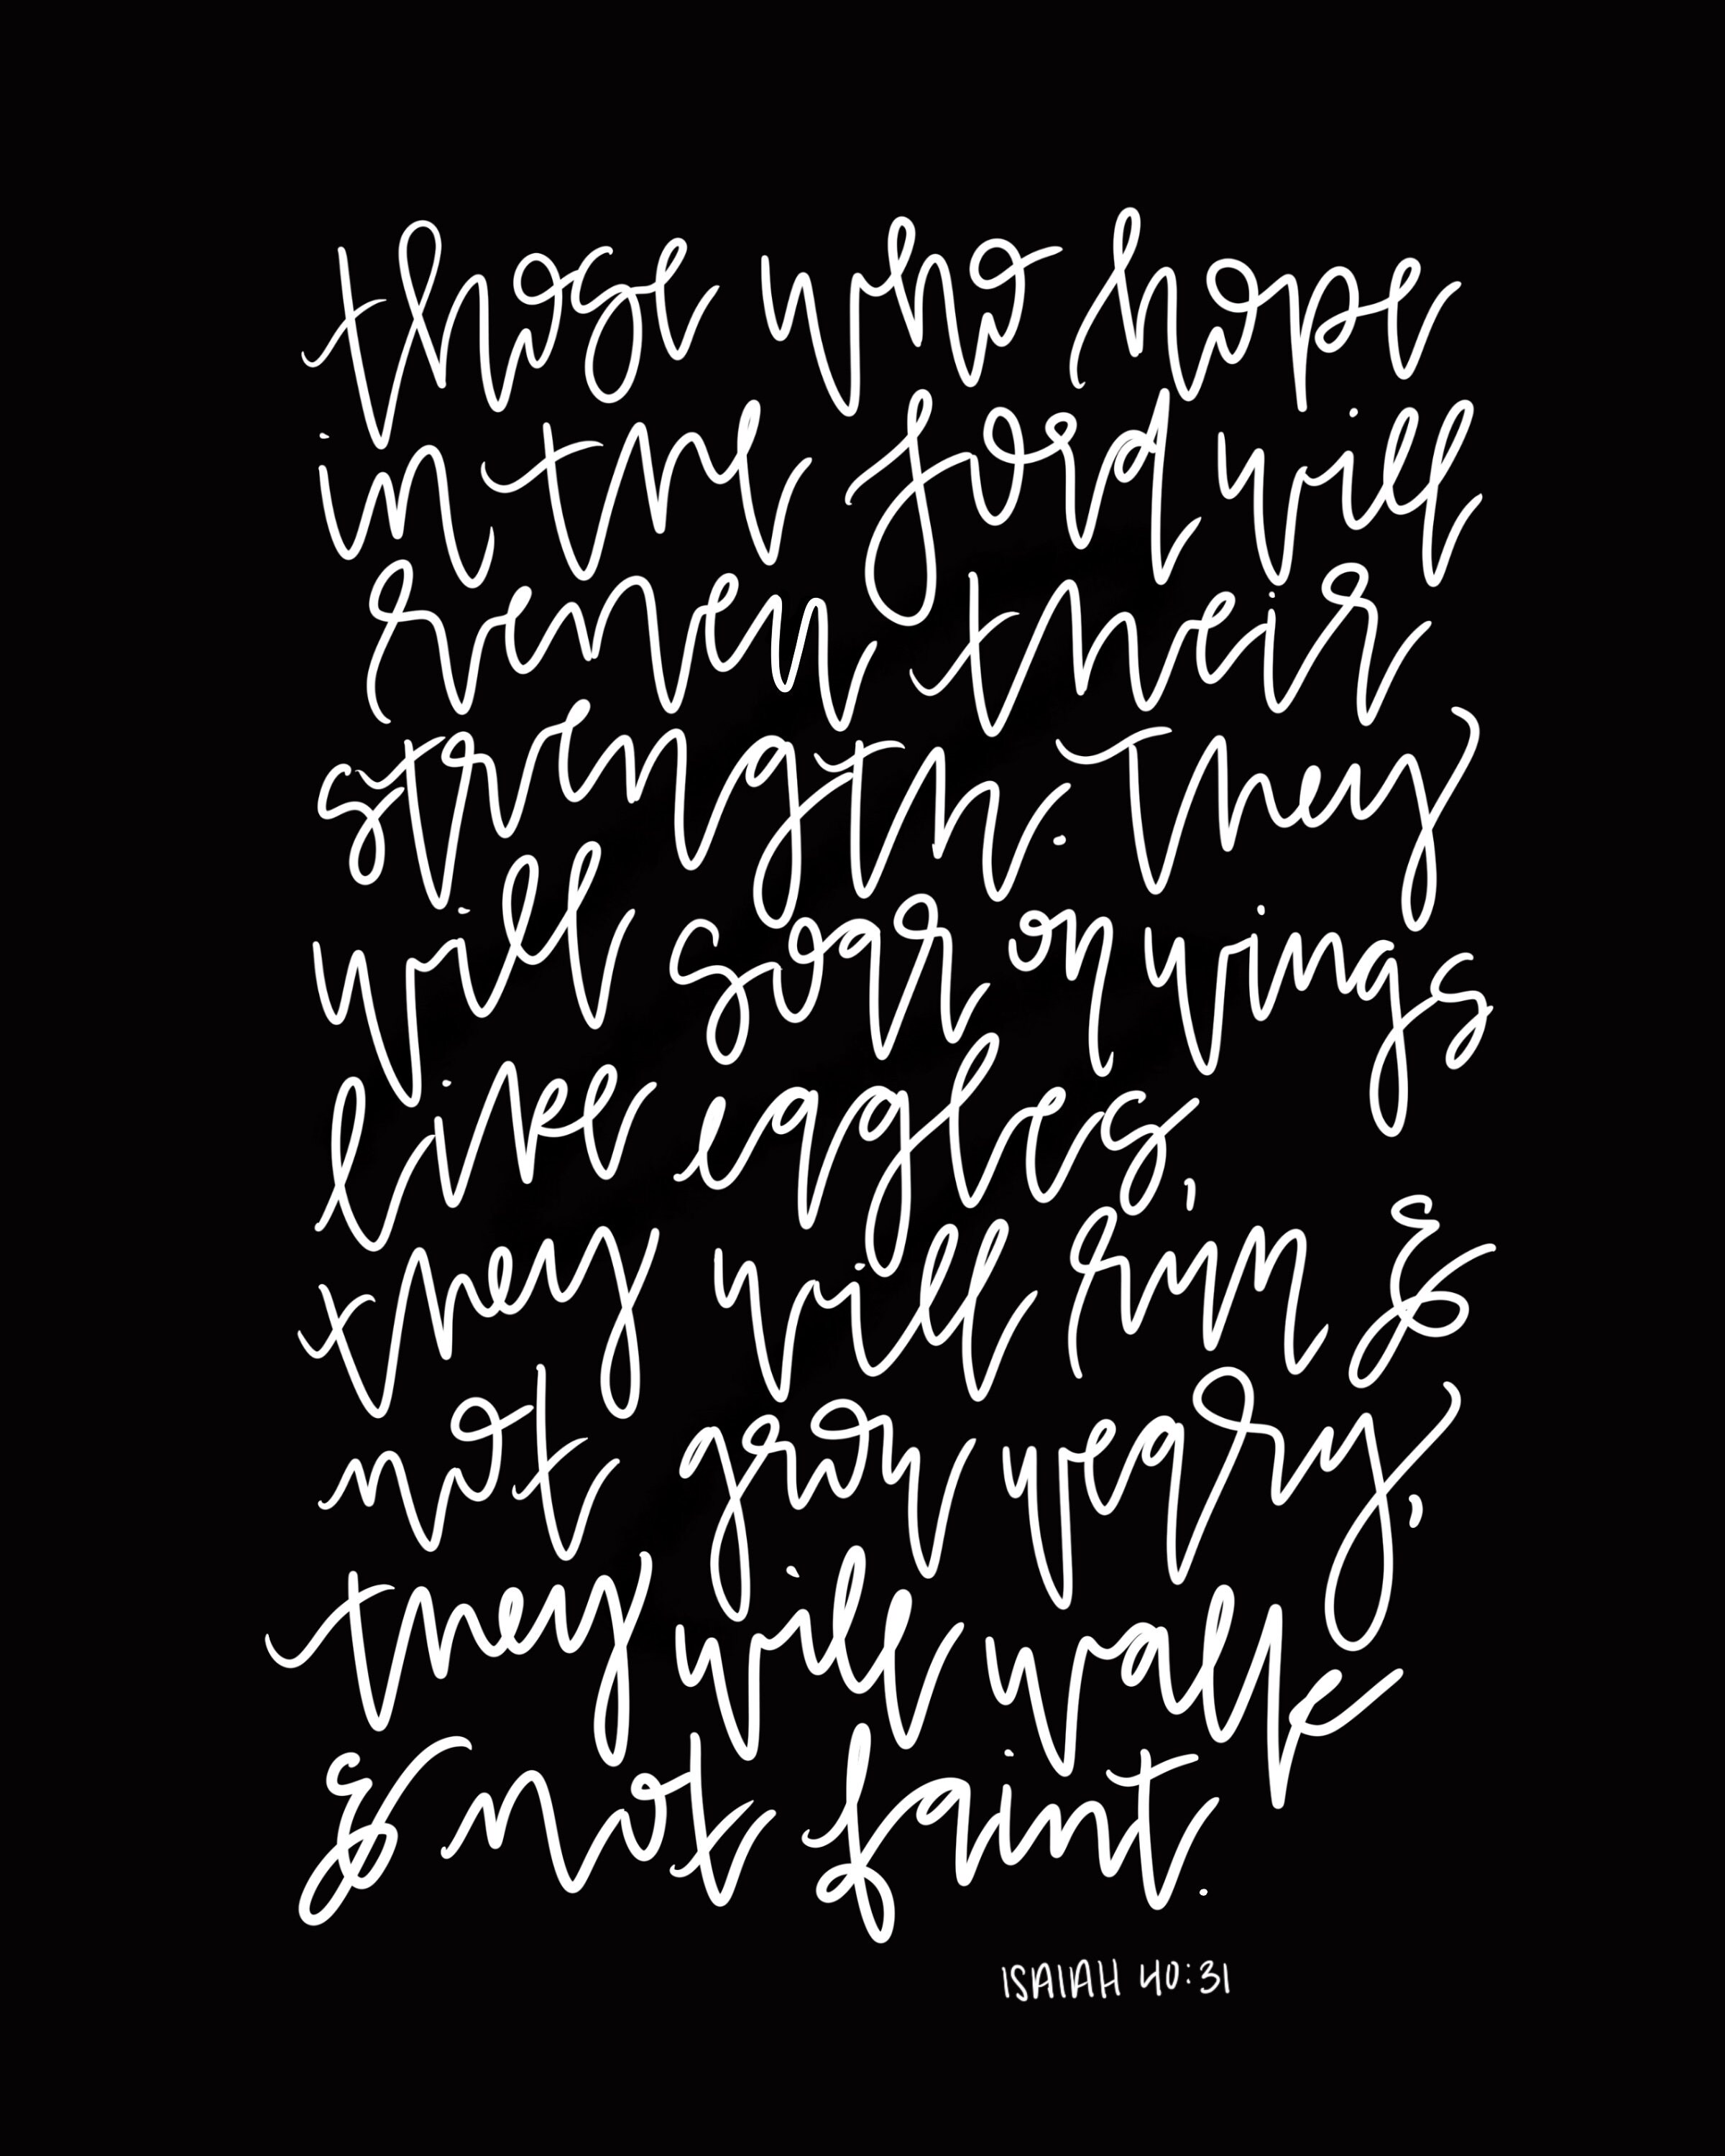 those who hope
in the Lord will
renew their
strength. They
will soar on wings
like eagles;
they will run &
not grow weary,
they will walk
& not faint.
ISAIAH 40:31